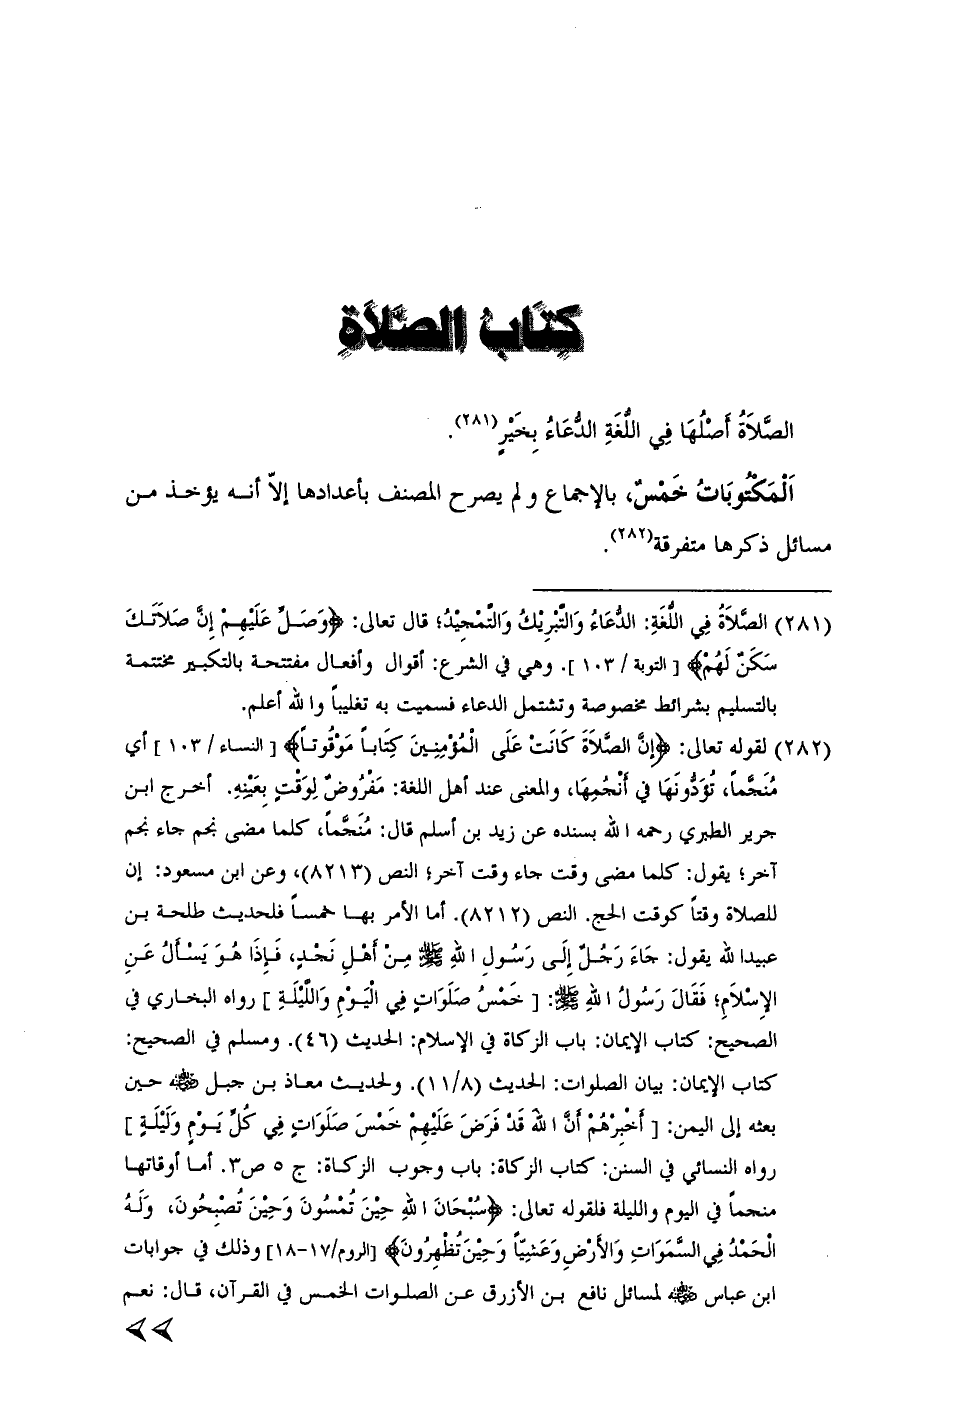 كِتَابُ الصَّلَاةِ
الصَّلَاةُ أَصْلُهَا فِي اللُّغَةِ الدُّعَاءُ بِخَيْرٍ(٢٨١).
اَلْمَكْتُوبَاتُ خَمْسٌ، بالإجماع ولم يصرح المصنف بأعدادها إلاّ أنه يؤخذ من
مسائل ذكرها متفرقة(٢٨٢).
(٢٨١) الصَّلَاةُ فِي اللُّغَةِ: الدُّعَاءُ وَالتَّبْرِيْكُ وَالتَّمْجِيْدُ؛ قال تعالى: ﴿وَصَلِّ عَلَيْهِمْ إِنَّ صَلَاتَكَ
سَكَنٌ لَهُمْ﴾ [ التوبة / ١٠٣ ]. وهي في الشرع: أقوال وأفعال مفتتحة بالتكبير مختتمة
بالتسليم بشرائط مخصوصة وتشتمل الدعاء فسميت به تغليباً والله أعلم.
(٢٨٢) لقوله تعالى: ﴿إِنَّ الصَّلَاةَ كَانَتْ عَلَى الْمُؤْمِنِينَ كِتَاباً مَوْقُوتاً﴾ [ النساء / ١٠٣ ] أي
مُنَجَّماً، تُؤَدُّونَهَا فِي أَنْجُمِهَا، والمعنى عند أهل اللغة: مَفْرُوضٌ لِوَقْتٍ بِعَيْنِهِ. أخرج ابن
جرير الطبري رحمه الله بسنده عن زيد بن أسلم قال: مُنَجَّماً، كلما مضى نجم جاء نجم
آخر؛ يقول: كلما مضى وقت جاء وقت آخر؛ النص (٨٢١٣)، وعن ابن مسعود: إن
للصلاة وقتاً كوقت الحج. النص (٨٢١٢). أما الأمر بها خمساً فلحديث طلحة بن
عبيدالله يقول: جَاءَ رَجُلٌ إِلَى رَسُولِ اللهِ ﷺ مِنْ أَهْلِ نَجْدٍ، فَإِذَا هُوَ يَسْأَلُ عَنِ
الإِسْلَامِ؛ فَقَالَ رَسُولُ اللهِ ﷺ: [ خَمْسُ صَلَوَاتٍ فِي الْيَوْمِ وَاللَّيْلَةِ ] رواه البخاري في
الصحيح: كتاب الإيمان: باب الزكاة في الإسلام: الحديث (٤٦). ومسلم في الصحيح:
كتاب الإيمان: بيان الصلوات: الحديث (١١/٨). ولحديث معاذ بن جبل ﵁ حين
بعثه إلى اليمن: [ أَخْبِرْهُمْ أَنَّ اللهَ قَدْ فَرَضَ عَلَيْهِمْ خَمْسَ صَلَوَاتٍ فِي كُلِّ يَوْمٍ وَلَيْلَةٍ ]
رواه النسائي في السنن: كتاب الزكاة: باب وجوب الزكاة: ج ٥ ص٣. أما أوقاتها
منجماً في اليوم والليلة فلقوله تعالى: ﴿سُبْحَانَ اللهِ حِيْنَ تُمْسُونَ وَحِيْنَ تُصْبِحُونَ، وَلَهُ
الْحَمْدُ فِي السَّمَوَاتِ وَالأَرْضِ وَعَشِيّاً وَحِيْنَ تُظْهِرُونَ﴾ [الروم/١٧-١٨] وذلك في جوابات
ابن عباس ﵁ لمسائل نافع بن الأزرق عن الصلوات الخمس في القرآن، قال: نعم